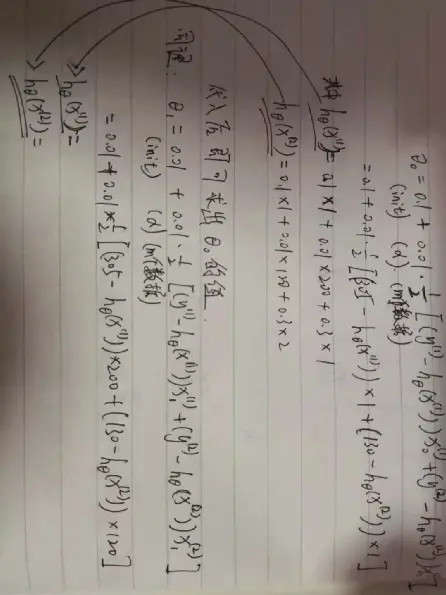 θ₀ = 0.1 + 0.01 · 1/2 [(y⁽¹⁾ - hθ(x⁽¹⁾))x₀⁽¹⁾ + (y⁽²⁾ - hθ(x⁽²⁾))x₀⁽²⁾]
(init) (α) (m个数据)
= 0.1 + 0.01 · 1/2 [(305 - hθ(x⁽¹⁾)) × 1 + (130 - hθ(x⁽²⁾)) × 1]
其中 hθ(x⁽¹⁾) = 0.1 × 1 + 0.01 × 200 + 0.3 × 1
hθ(x⁽²⁾) = 0.1 × 1 + 0.01 × 120 + 0.3 × 2
代入后即可求出 θ₀ 的值.
同理: θ₁ = 0.01 + 0.01 · 1/2 [(y⁽¹⁾ - hθ(x⁽¹⁾))x₁⁽¹⁾ + (y⁽²⁾ - hθ(x⁽²⁾))x₁⁽²⁾]
(init) (α) (m个数据)
= 0.01 + 0.01 × 1/2 [(305 - hθ(x⁽¹⁾)) × 200 + (130 - hθ(x⁽²⁾)) × 120]
hθ(x⁽¹⁾) =
hθ(x⁽²⁾) =